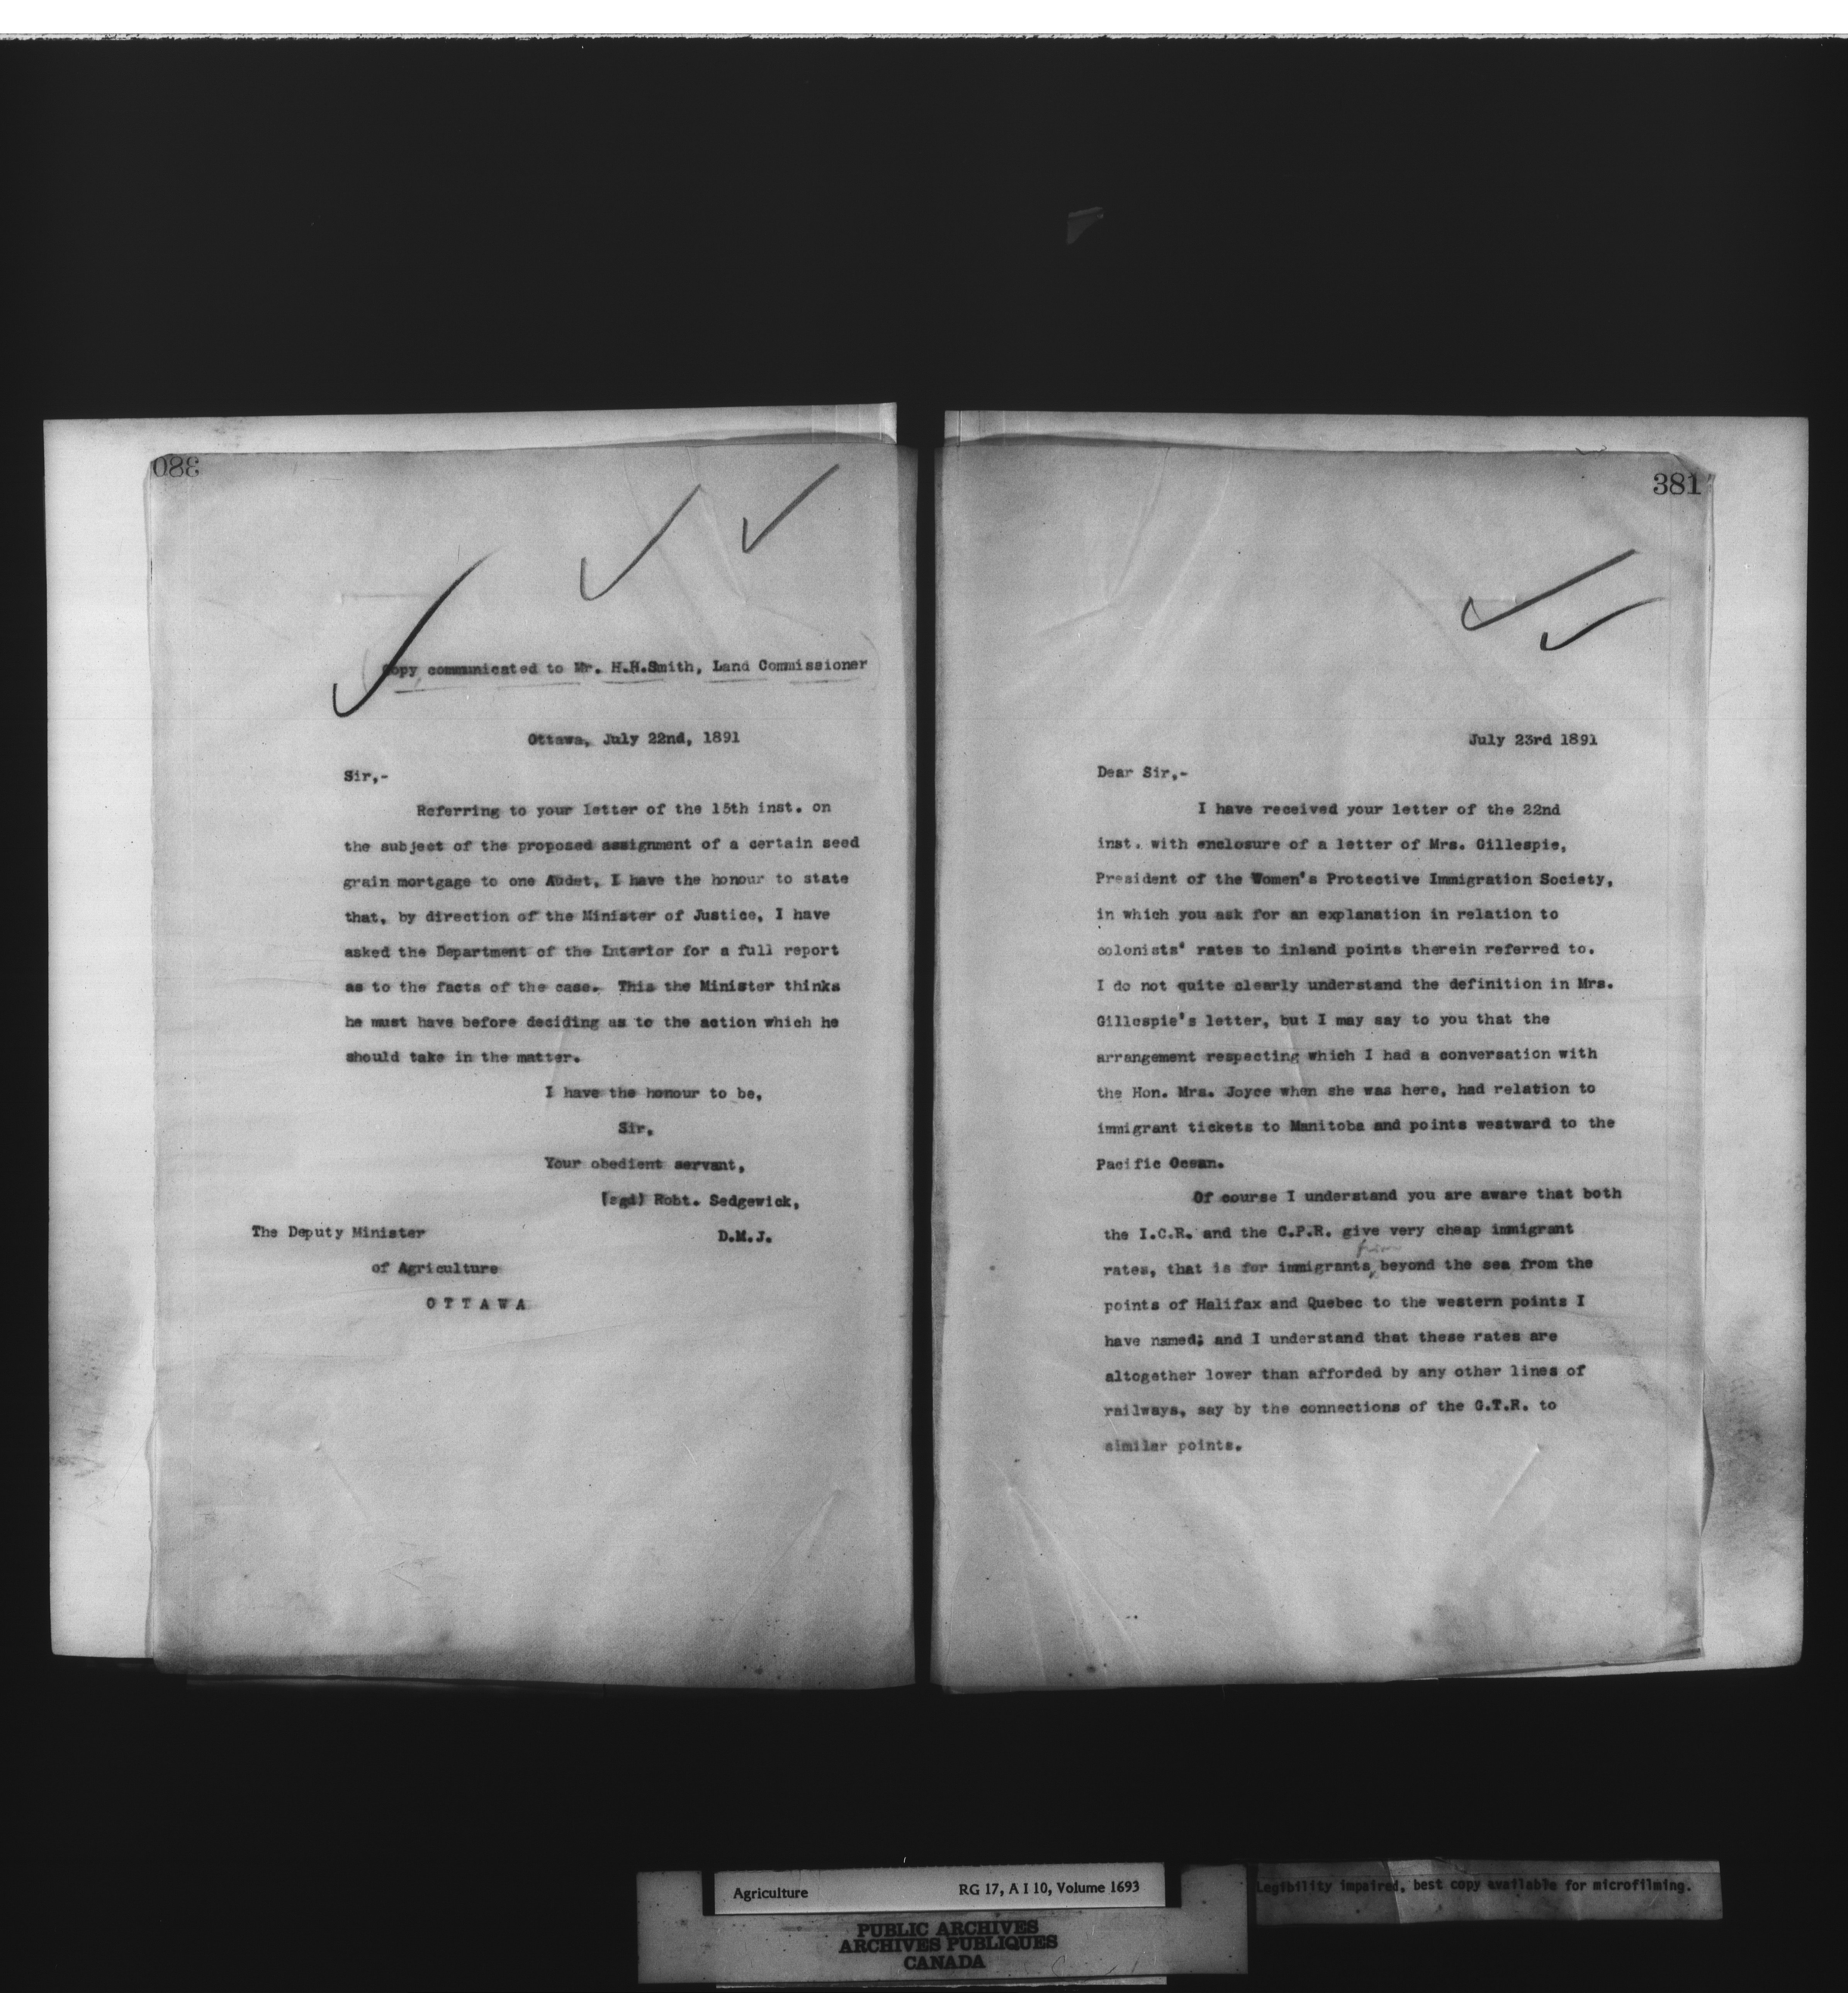 380
Copy communicated to Mr. H.H.Smith, Land Commissioner
Ottawa, July 22nd, 1891
Sir,-
Referring to your letter of the 15th inst. on
the subject of the proposed assignment of a certain seed
grain mortgage to one Audet, I have the honour to state
that, by direction of the Minister of Justice, I have
asked the Department of the Interior for a full report
as to the facts of the case. This the Minister thinks
he must have before deciding as to the action which he
should take in the matter.
I have the honour to be,
Sir,
Your obedient servant,
(sgd) Robt. Sedgewick,
D.M.J.
The Deputy Minister
of Agriculture
OTTAWA
381
July 23rd 1891
Dear Sir,-
I have received your letter of the 22nd
inst. with enclosure of a letter of Mrs. Gillespie,
President of the Women's Protective Immigration Society,
in which you ask for an explanation in relation to
colonists' rates to inland points therein referred to.
I do not quite clearly understand the definition in Mrs.
Gillespie's letter, but I may say to you that the
arrangement respecting which I had a conversation with
the Hon. Mrs. Joyce when she was here, had relation to
immigrant tickets to Manitoba and points westward to the
Pacific Ocean.
Of course I understand you are aware that both
the I.C.R. and the C.P.R. give very cheap immigrant
from
rates, that is for immigrants beyond the sea from the
points of Halifax and Quebec to the western points I
have named; and I understand that these rates are
altogether lower than afforded by any other lines of
railways, say by the connections of the G.T.R. to
similar points.
Agriculture RG 17, A I 10, Volume 1693
Legibility impaired, best copy available for microfilming.
PUBLIC ARCHIVES
ARCHIVES PUBLIQUES
CANADA